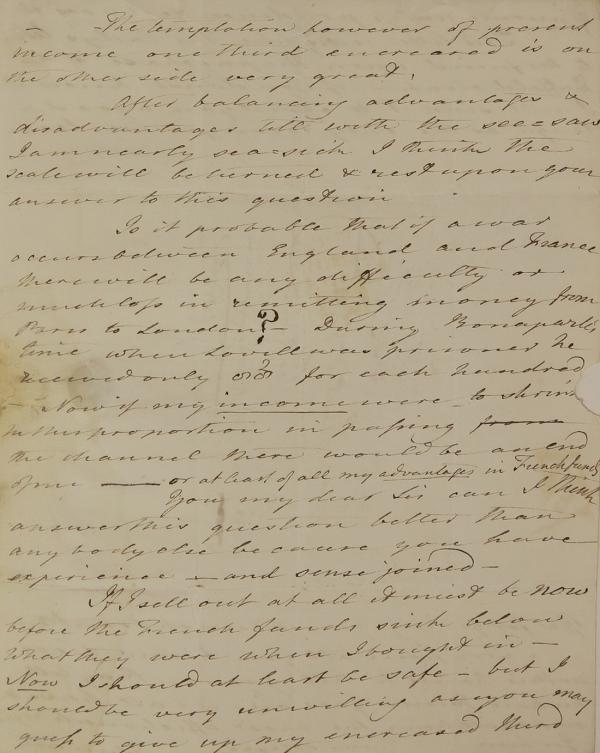 – – The temptation however of present
income one third encreased is on
the other side very great.
After balancing advantages &
disadvantages till with the see=saw
I am nearly sea=sick I think the
scale will be turned & rest upon your
answer to this question
Is it probable that if a war
occurs between England and France
there will be any difficulty or
much loss in remitting money from
Paris to London? – During Bonapartes
time when Lovell was prisoner he
received only for each hundred
– Now if my income were to shrink
in this proportion in passing from
the channel there would be an end
of me — or at least of all my advantages in French funds
You my dear Sir can I think
answer this question better than
any body else because you have
experience – and sense joined –
If I sell out at all it must be now
before the French funds sink below
what they were when I bought in –
Now I should at least be safe – but I
should be very unwilling as you may
guess to give up my encreased third